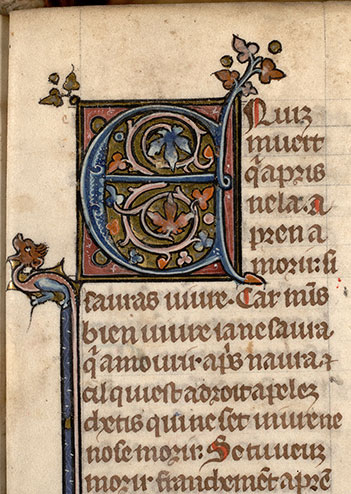 ENuiz
muert
q̄ apris
nela. A
pren a
morir. si
sauras uiure. Car nus
bien uiure ia ne saura
q̄ a mourir. ap̄s naura ⁊
cil qui est a droit apelez
chetis qui ne set uiure ne
nose morir. Se tu ueuz
morir franchemēt aprē